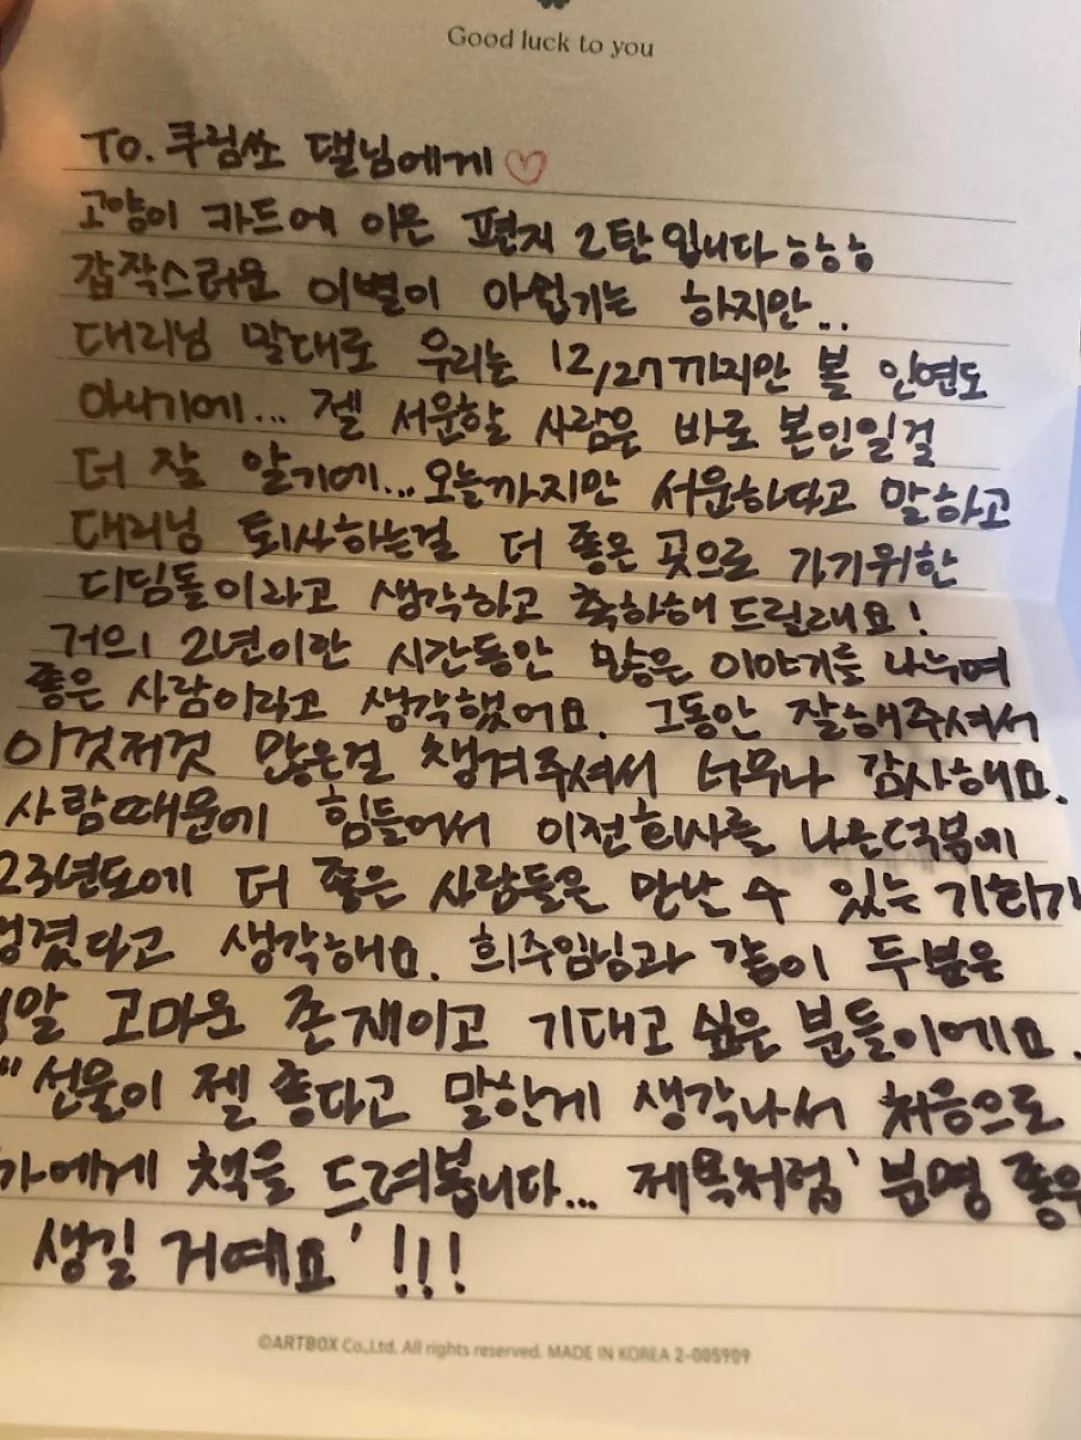 Good luck to you
To. 쿠림쏘 댈님에게♡
고양이 카드에 이은 편지 2탄입니다 ㅎㅎㅎ
갑작스러운 이별이 아쉽기는 하지만..
대리님 말대로 우리는 12/27까지만 볼 인연도
아니기에... 젤 서운할 사람은 바로 본인일걸
더 잘 알기에... 오늘까지만 서운하다고 말하고
대리님 퇴사하는걸 더 좋은 곳으로 가기위한
디딤돌이라고 생각하고 축하해 드릴래요!
거의 2년이란 시간동안 많은 이야기를 나누며
좋은 사람이라고 생각했어요. 그동안 잘해주셔서
이것저것 많은걸 챙겨주셔서 너무나 감사해요.
사람때문에 힘들어서 이전회사를 나온덕분에
23년도에 더 좋은 사람들은 만난 수 있는 기회가
생겼다고 생각해요. 희주임님과 같이 두분은
정말 고마운 존재이고 기대고 싶은 분들이에요.
"선물이 젤 좋다고 말한게 생각나서 처음으로
에게 책을 드려봅니다... 제목처럼 '분명 좋은
생길 거예요'!!!
©ARTBOX Co.,Ltd. All rights reserved. MADE IN KOREA 2-005909